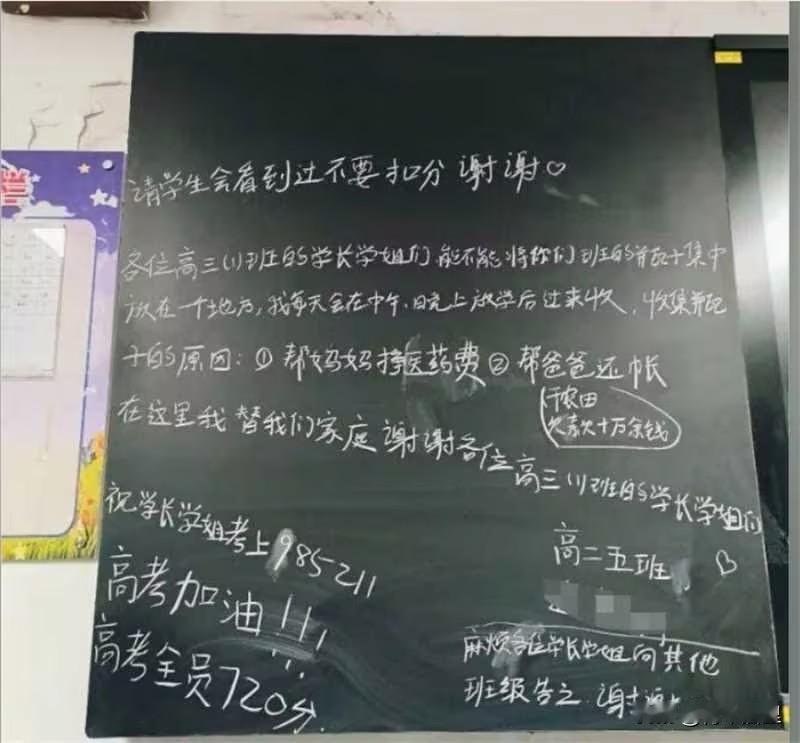 请学生会看到过不要扣分 谢谢♡
各位高三(1)班的学长学姐们,能不能将你们班的并瓦十集中
放在一个地方,我每天会在中午、晚上放学后过来收,收集并瓦
十的原因:①帮妈妈挣医药费②帮爸爸还帐
(干农田
欠款十万余钱)
在这里我替我们家庭谢谢各位高三(1)班的学长学姐们
祝学长学姐考上985211
高考加油!!!
高考全员720分
高二五班 ♡
麻烦各位学长学姐向其他
班级告之 谢谢